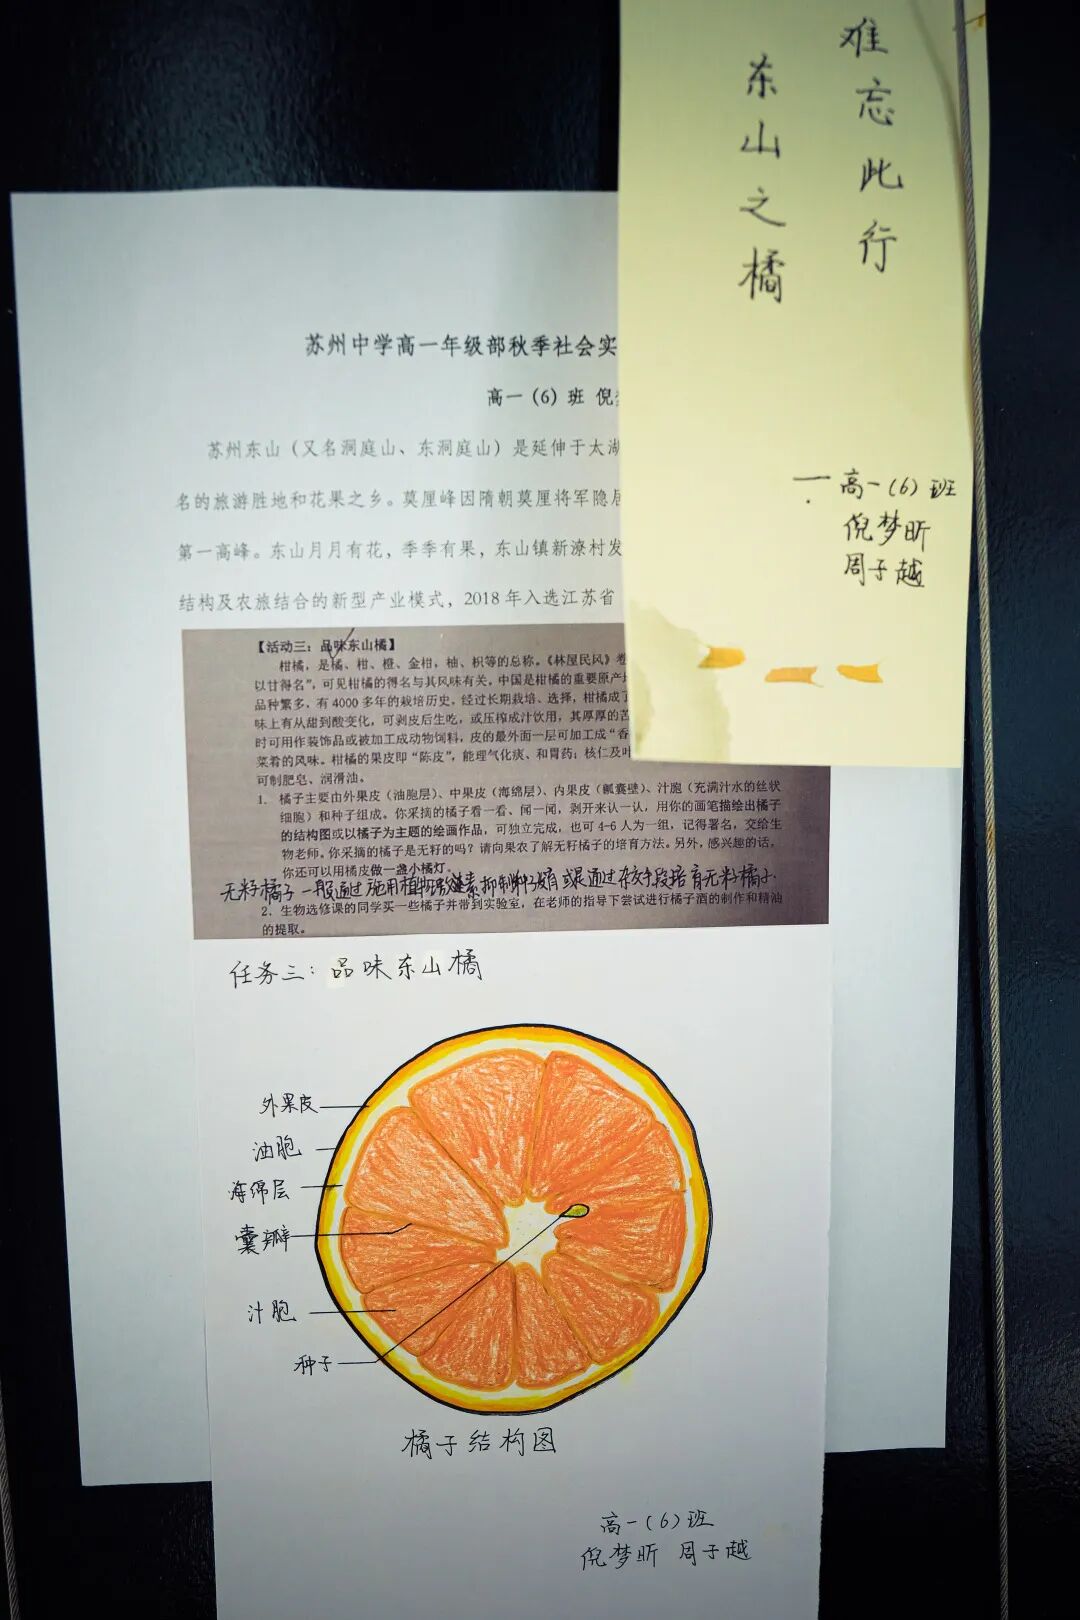 难忘此行
东山之橘
一高一(6)班
倪梦昕
周子越
苏州中学高一年级部秋季社会实
高一（6）班 倪
苏州东山（又名洞庭山、东洞庭山）是延伸于太湖
名的旅游胜地和花果之乡。莫厘峰因隋朝莫厘将军隐居
第一高峰。东山月月有花，季季有果，东山镇新潦村发
结构及农旅结合的新型产业模式，2018年入选江苏省
【活动三：品味东山橘】
柑橘，是橘、柑、橙、金柑，柚、枳等的总称。《林屋民风》卷
以甘得名”，可见柑橘的得名与其风味有关。中国是柑橘的重要原产
品种繁多，有4000多年的栽培历史。经过长期栽培、选择，柑橘成了
味上有从甜到酸变化，可剥皮后生吃，或压榨成汁饮用，其厚厚的苦
时可用作装饰品或被加工成动物饲料，皮的最外面一层可加工成“香
菜肴的风味。柑橘的果皮即“陈皮”，能理气化痰、和胃药；核仁及叶
可制肥皂、润滑油。
1. 橘子主要由外果皮（油胞层）、中果皮（海绵层）、内果皮（瓤囊壁）、汁胞（充满汁水的丝状
细胞）和种子组成。你采摘的橘子看一看、闻一闻，剥开来认一认，用你的画笔描绘出橘子
的结构图或以橘子为主题的绘画作品，可独立完成，也可4-6人为一组，记得署名，交给生
物老师。你采摘的橘子是无籽的吗？请向果农了解无籽橘子的培育方法。另外，感兴趣的话，
你还可以用橘皮做一盏小橘灯。
无籽橘子一般通过施用植物激素抑制种子发育或是通过杂交手段培育无籽橘子.
2. 生物选修课的同学买一些橘子并带到实验室，在老师的指导下尝试进行橘子酒的制作和精油
的提取。
任务三：品味东山橘
外果皮
油胞
海绵层
囊瓣
汁胞
种子
橘子结构图
高一(6)班
倪梦昕 周子越